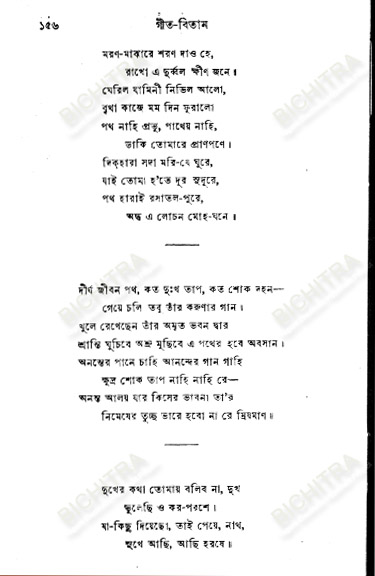 ১৫৬ গীত-বিতান
মরণ-মাঝারে শরণ দাও হে,
রাখো এ দুর্ব্বল ক্ষীণ জনে।
ঘেরিল যামিনী নিভিল আলো,
বৃথা কাজে মম দিন ফুরালো
পথ নাহি প্রভু, পাথেয় নাহি,
ডাকি তোমারে প্রাণপণে।
দিক্‌হারা সদা মরি-যে ঘুরে,
যাই তোমা হ'তে দূর সুদূরে,
পথ হারাই রসাতল-পুরে,
অন্ধ এ লোচন মোহ-ঘনে।
দীর্ঘ জীবন পথ, কত দুঃখ তাপ, কত শোক দহন—
গেয়ে চলি তবু তাঁর করুণার গান।
খুলে রেখেছেন তাঁর অমৃত ভবন দ্বার
শ্রান্তি ঘুচিবে অশ্রু মুছিবে এ পথের হবে অবসান।
অনন্তের পানে চাহি আনন্দের গান গাহি
ক্ষুদ্র শোক তাপ নাহি নাহি রে—
অনন্ত আলয় যার কিসের ভাবনা তা'র
নিমেষের তুচ্ছ ভারে হবো না রে ম্রিয়মাণ॥
দুখের কথা তোমায় বলিব না, দুখ
ভুলেছি ও কর-পরশে।
যা-কিছু দিয়েছো, তাই পেয়ে, নাথ,
সুখে আছি, আছি হরষে॥
BICHITRA
BICHITRA
BICHITRA
BICHITRA
BICHITRA
BICHITRA